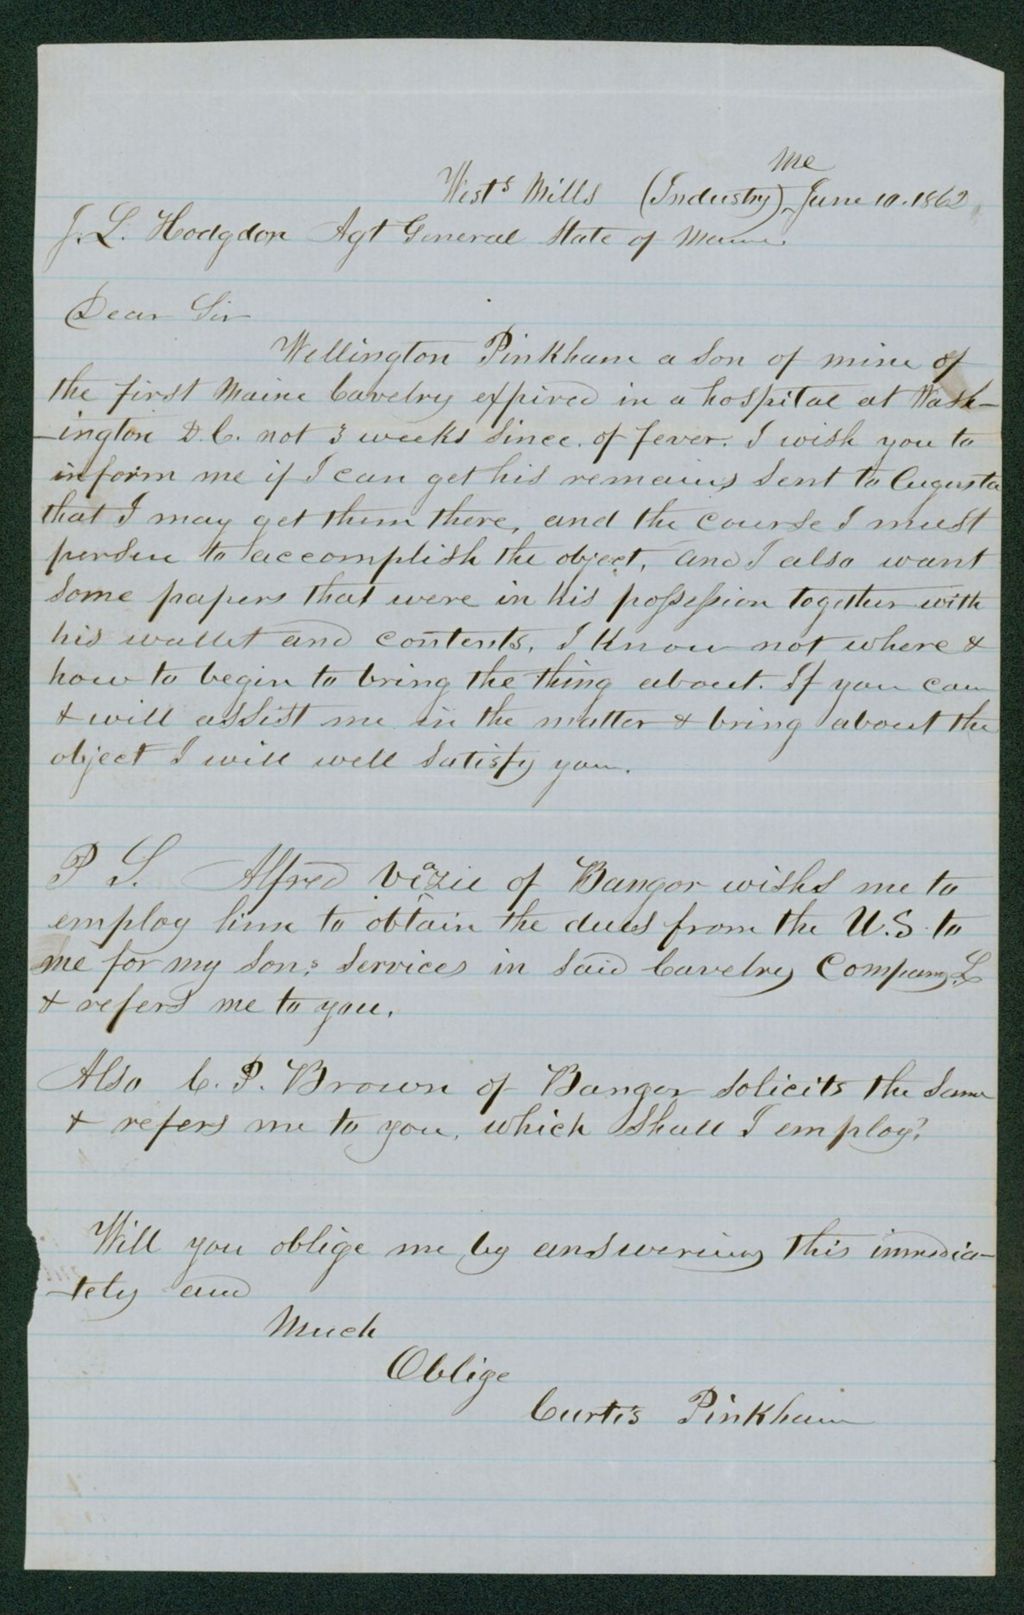 Me
West's Mills (Industry), June 10. 1862
J. L. Hodgdon Agt General State of Maine.
Dear Sir
Wellington Pinkham a son of mine of
the first Maine Cavelry expired in a hospital at Wash-
-ington D.C. not 3 weeks since. of fever. I wish you to
inform me if I can get his remains sent to Augusta
that I may get them there, and the course I must
persue to accomplish the object, and I also want
some papers that were in his possession together with
his wallet and contents, I know not where &
how to begin to bring the thing about. If you can
& will assist me in the matter & bring about the
object I will well satisfy you.
P S. Alfred Veazie of Bangor wishs me to
employ him to obtain the dues from the U.S. to
me for my son,s services in said Cavelry Company L
& refers me to you.
Also C. P. Brown of Bangor solicits the same
& refers me to you, which shall I employ?
Will you oblige me by answering this immedia-
-tely and
Much
Oblige
Curtis Pinkham